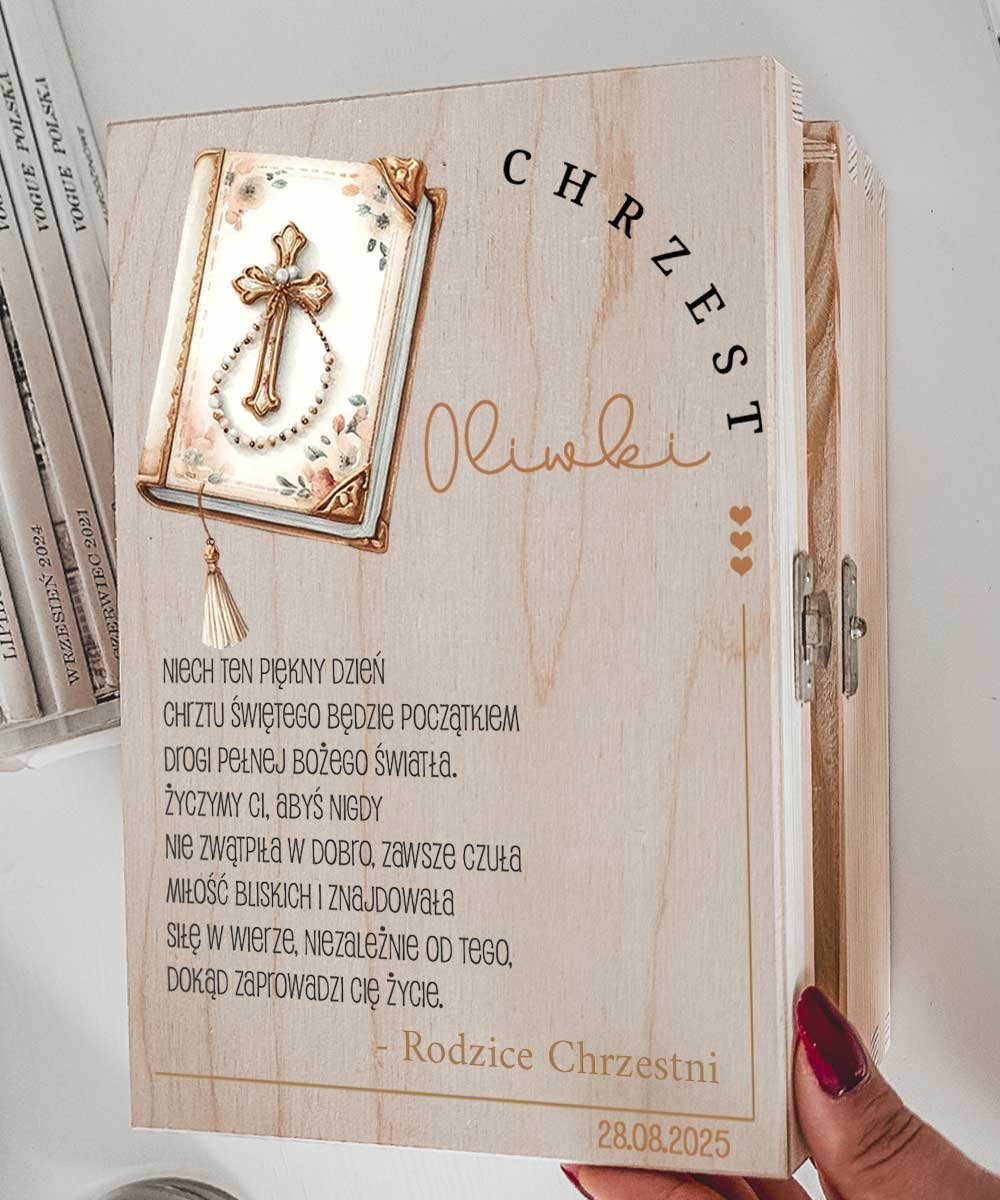 VOGUE POLSKA
VOGUE POLSKA
WRZESIEŃ 2024
CZERWIEC 2021
CHRZEST
Oliwki
NIECH TEN PIĘKNY DZIEŃ
CHRZTU ŚWIĘTEGO BĘDZIE POCZĄTKIEM
DROGI PEŁNEJ BOŻEGO ŚWIATŁA.
ŻYCZYMY CI, ABYŚ NIGDY
NIE ZWĄTPIŁA W DOBRO, ZAWSZE CZUŁA
MIŁOŚĆ BLISKICH I ZNAJDOWAŁA
SIŁĘ W WIERZE, NIEZALEŻNIE OD TEGO,
DOKĄD ZAPROWADZI CIĘ ŻYCIE.
- Rodzice Chrzestni
28.08.2025